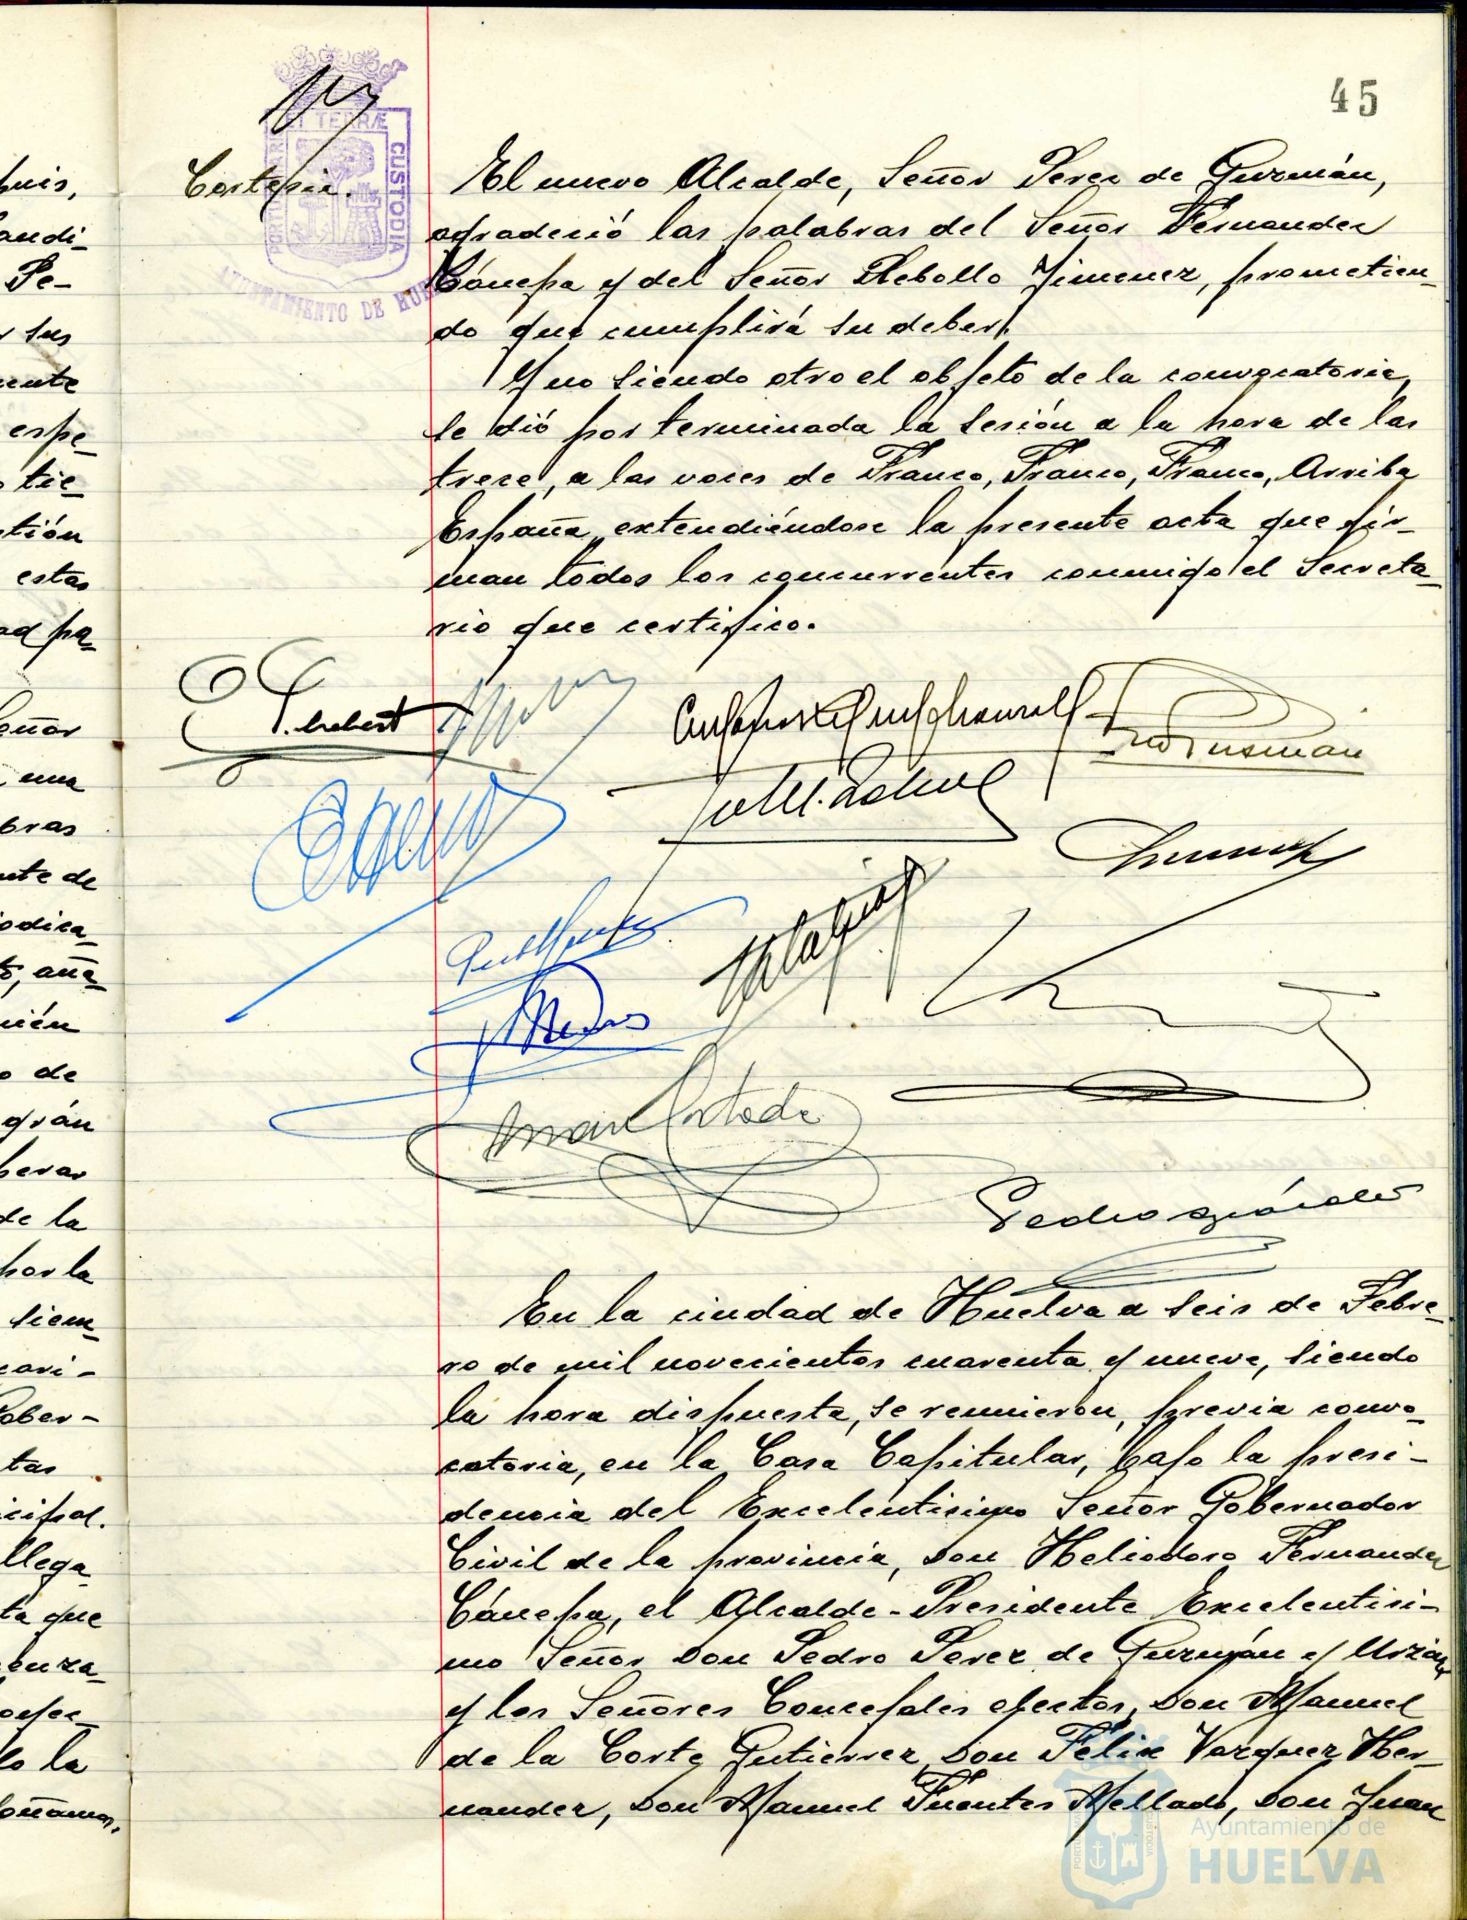 45
PORTUS MARIS ET TERRÆ CUSTODIA
AYUNTAMIENTO DE HUELVA
Cortesia.
El nuevo Alcalde, Señor Perez de Guzmán,
agradeció las palabras del Señor Fernandez
Cánepa y del Señor Rebollo Jimenez, prometien-
do que cumplirá su deber.
Y no siendo otro el objeto de la convocatoria,
se dió por terminada la sesión a la hora de las
trece, a las voces de Franco, Franco, Franco, Arriba
España, extendiéndose la presente acta que fir-
man todos los concurrentes conmigo el Secreta-
rio que certifico.
En la ciudad de Huelva a seis de Febre-
ro de mil novecientos cuarenta y nueve, siendo
la hora dispuesta, se reunieron, previa convo-
catoria, en la Casa Capitular, bajo la presi-
dencia del Excelentisimo Señor Gobernador
Civil de la provincia, Don Heliodoro Fernandez
Cánepa, el Alcalde-Presidente Excelentisi-
mo Señor Don Pedro Perez de Guzmán y Urzaiz
y los Señores Concejales electos, Don Manuel
de la Corte Gutierrez, Don Félix Vazquez Her-
nandez, Don Manuel Fuentes Mellado, Don Juan
Ayuntamiento de
HUELVA
puis,
andi-
Pe-
r sus
mente
espe-
tie-
tión
estas
ad pa-
eñor
una
bras
nte de
odica-
to, aña-
de
grán
de la
por la
siem-
cari-
Gober-
tas
icipal.
llega-
ta que
enza-
lo la